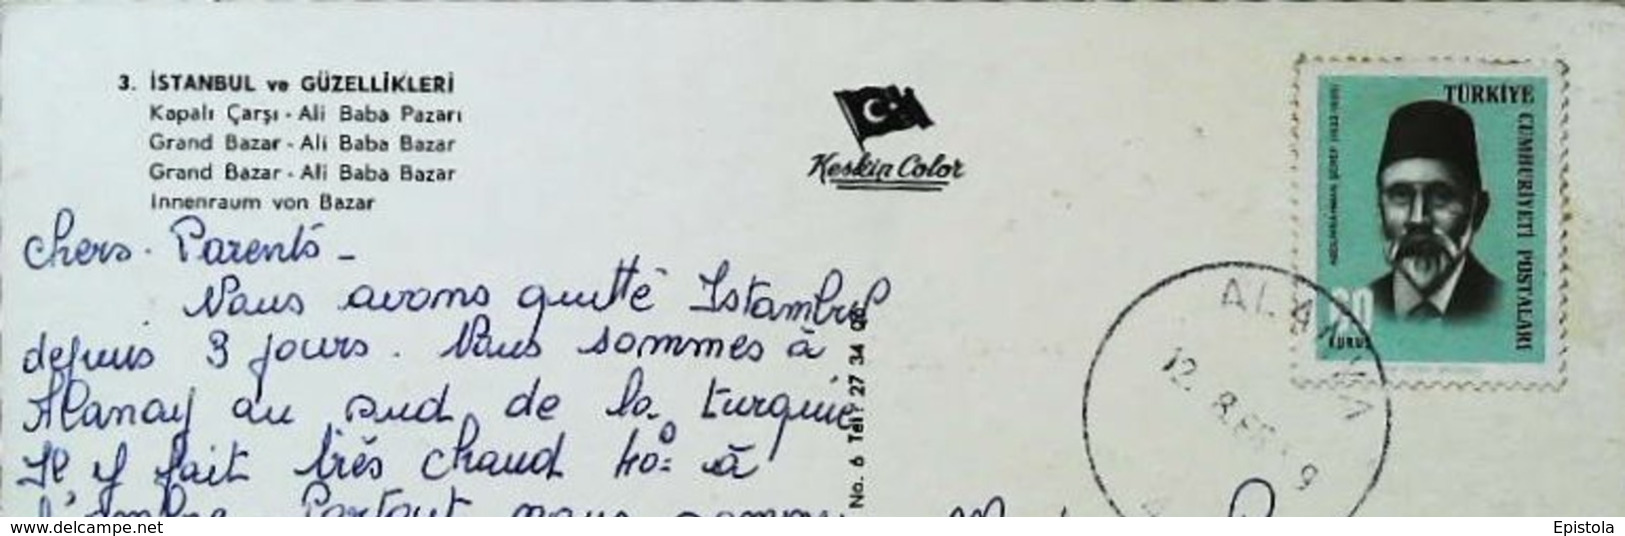 3. İSTANBUL ve GÜZELLİKLERİ
Kapalı Çarşı - Ali Baba Pazarı
Grand Bazar - Ali Baba Bazar
Grand Bazar - Ali Baba Bazar
Innenraum von Bazar
Keskin Color
TÜRKİYE
CUMHURİYETİ POSTALARI
ABDURRAHMAN ŞEREF
KURUŞ
ALANYA
12. 8.
chers. Parents -
Nous avons quitté Istambul
depuis 3 jours. Nous sommes à
Alanay au sud de la turquie
Il y fait très chaud 40° à
l'ombre. Partout nous
No. 6 Tel: 27 34
www.delcampe.net
Epistola